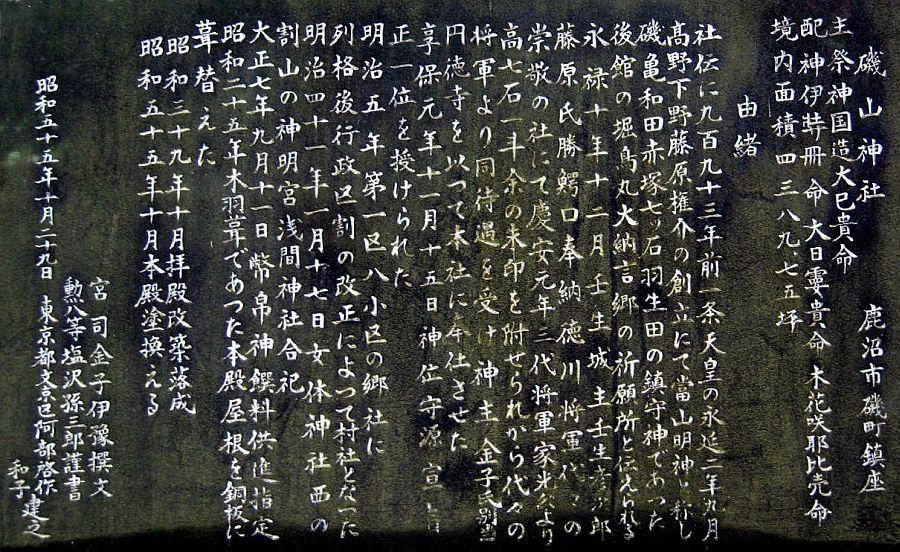 磯山神社　鹿沼市磯町鎮座
主祭神国造大巳貴命
配神伊弉冊命 大日孁貴命 木花咲耶比売命
境内面積四三八九、七五坪
由緒
社伝に九百九十三年前一条天皇の永延二年九月
髙野下野藤原権介の創立にて當山明神と称し
磯亀和田赤塚七ッ石羽生田の鎮守神であった
後館の堀鳥丸大納言郷の祈願所と伝えられる
永禄十年十二月壬生城主壬生彦次郎
藤原氏勝鰐口奉納徳川将軍代々の
崇敬の社にて慶安元年三代将軍家光より
高七石一斗余の朱印を附せられから代々の
将軍より同待遇を受け神主金子氏別当
円徳寺を以って本社に奉仕させた
享保元年十一月十五日神位守源宣旨
正一位を授けられた
明治五年第一区八小区の郷社に
列格後行政区割の改正によって村社となった
明治四十一年一月十七日女体神社西の
割山の神明宮浅間神社合祀
大正七年九月十一日幣帛神饌料供進指定
昭和二十五年木羽葺であつた本殿屋根を銅板に
葺替えた
昭和三十九年十月拝殿改築落成
昭和五十五年十月本殿塗換える
宮司金子伊豫撰文
勲八等塩沢孫三郎謹書
昭和五十五年十月二十九日 東京都文京区阿部啓作
和子 建之